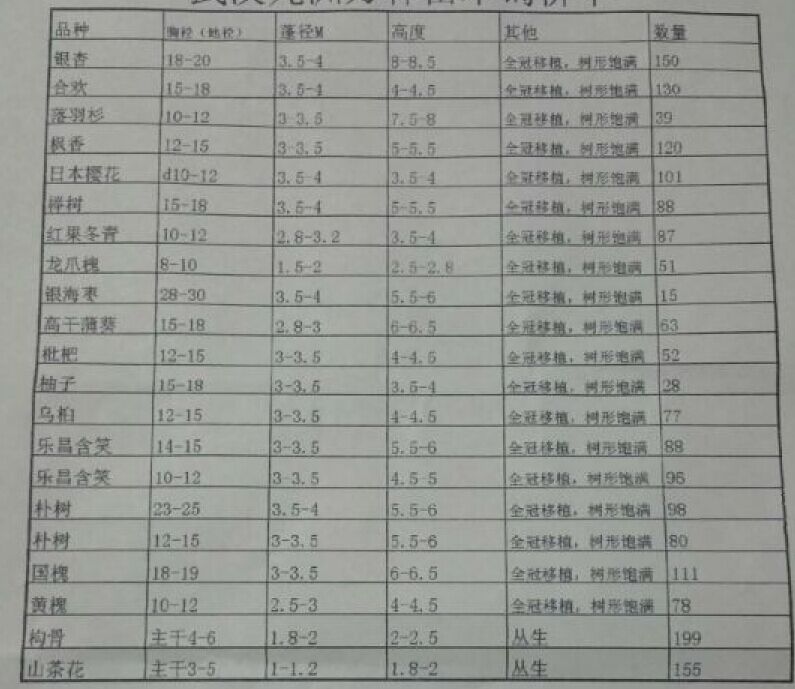 品种 胸径（地径） 蓬径M 高度 其他 数量
银杏 18-20 3.5-4 8-8.5 全冠移植，树形饱满 150
合欢 15-18 3.5-4 4-4.5 全冠移植，树形饱满 130
落羽杉 10-12 3-3.5 7.5-8 全冠移植，树形饱满 39
枫香 12-15 3-3.5 5-5.5 全冠移植，树形饱满 120
日本樱花 d10-12 3.5-4 3.5-4 全冠移植，树形饱满 101
榉树 15-18 3.5-4 5-5.5 全冠移植，树形饱满 88
红果冬青 10-12 2.8-3.2 3.5-4 全冠移植，树形饱满 87
龙爪槐 8-10 1.5-2 2.5-2.8 全冠移植，树形饱满 51
银海枣 28-30 3.5-4 5.5-6 全冠移植，树形饱满 15
高干蒲葵 15-18 2.8-3 6-6.5 全冠移植，树形饱满 63
枇杷 12-15 3-3.5 4-4.5 全冠移植，树形饱满 52
柚子 15-18 3-3.5 3.5-4 全冠移植，树形饱满 28
乌桕 12-15 3-3.5 4-4.5 全冠移植，树形饱满 77
乐昌含笑 14-15 3-3.5 5.5-6 全冠移植，树形饱满 88
乐昌含笑 10-12 3-3.5 4.5-5 全冠移植，树形饱满 96
朴树 23-25 3.5-4 5.5-6 全冠移植，树形饱满 98
朴树 12-15 3-3.5 5.5-6 全冠移植，树形饱满 80
国槐 18-19 3-3.5 6-6.5 全冠移植，树形饱满 111
黄槐 10-12 2.5-3 4-4.5 全冠移植，树形饱满 78
构骨 主干4-6 1.8-2 2-2.5 丛生 199
山茶花 主干3-5 1-1.2 1.8-2 丛生 155